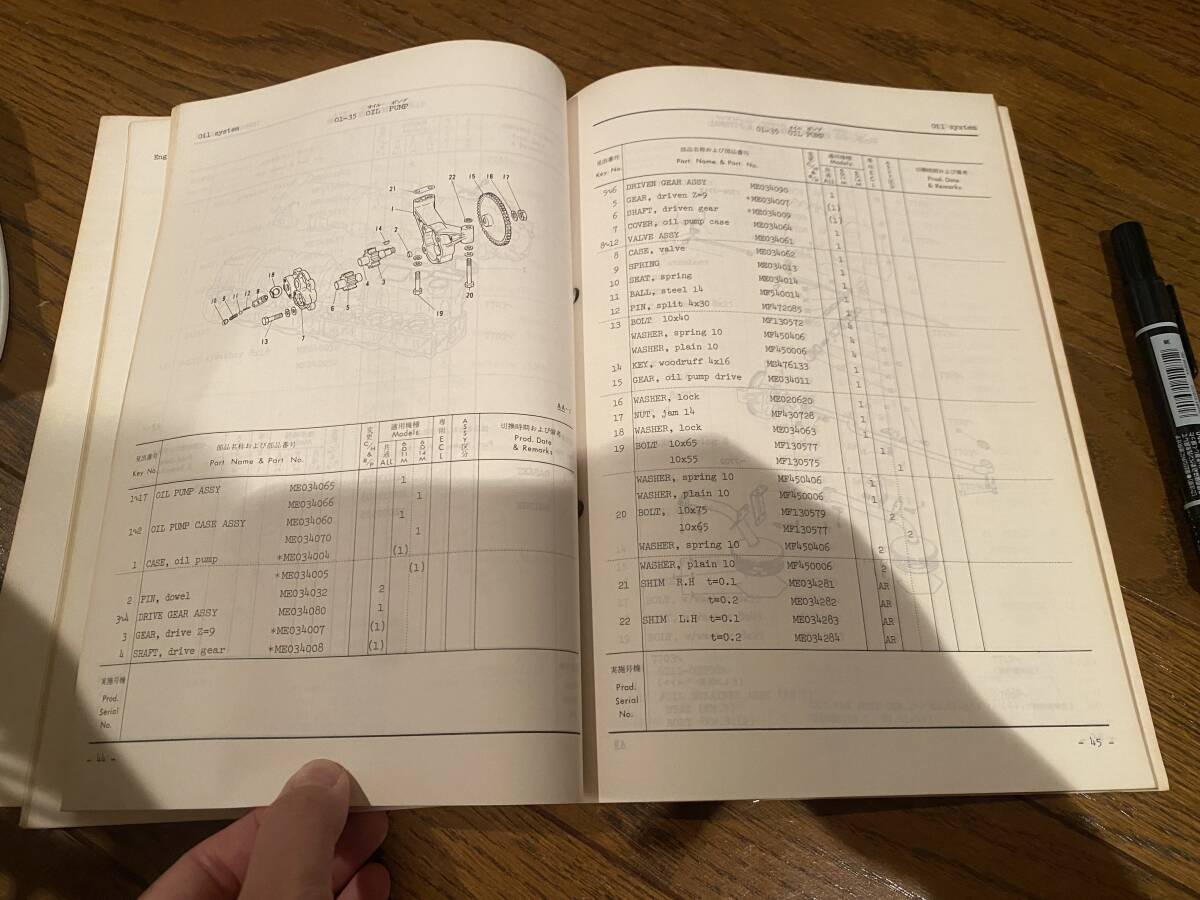 Oil system
オイル ポンプ
01-35 OIL PUMP
Eng
21
22 15 16 17
1
14
2
18
10 9 11 12 8
3
4
5
6
7
13
19
20
見出番号
Key No.
部品名称および部品番号
Part Name & Part No.
適用機種
Models
共通
ALL
6D11M
6D14M
専用ECL
ASSY区分
切換時期および備考
Prod. Date
& Remarks
1~17 OIL PUMP ASSY ME034065 1
ME034066 1
1~2 OIL PUMP CASE ASSY ME034060 1
ME034070 1
1 CASE, oil pump *ME034004 (1)
*ME034005 (1)
2 PIN, dowel ME034032 2
3~4 DRIVE GEAR ASSY ME034080 1
3 GEAR, drive Z=9 *ME034007 (1)
4 SHAFT, drive gear *ME034008 (1)
実施号機
Prod.
Serial
No.
- 44 -
オイル ポンプ
01-35 OIL PUMP
Oil system
見出番号
Key No.
部品名称および部品番号
Part Name & Part No.
適用機種
Models
ALL
切換時期および備考
Prod. Date
& Remarks
5~6 DRIVEN GEAR ASSY ME034090 1
5 GEAR, driven Z=9 *ME034007 (1)
6 SHAFT, driven gear *ME034009 (1)
7 COVER, oil pump case ME034064 1
8~12 VALVE ASSY ME034061 1
8 CASE, valve ME034062 1
9 SPRING ME034013 1
10 SEAT, spring ME034014 1
11 BALL, steel 14 MF540014 1
12 PIN, split 4x30 MF472085 1
13 BOLT 10x40 MF130572 4
WASHER, spring 10 MF450406 4
WASHER, plain 10 MF450006 4
14 KEY, woodruff 4x16 MS476133 1
15 GEAR, oil pump drive ME034011 1
16 WASHER, lock ME020620 1
17 NUT, jam 14 MF430728 1
18 WASHER, lock ME034063 1
19 BOLT 10x65 MF130577 1
10x55 MF130575 1
WASHER, spring 10 MF450406 1
WASHER, plain 10 MF450006 1
20 BOLT, 10x75 MF130579 2
10x65 MF130577 2
WASHER, spring 10 MF450406 2
WASHER, plain 10 MF450006 2
21 SHIM R.H t=0.1 ME034281 AR
t=0.2 ME034282 AR
22 SHIM L.H t=0.1 ME034283 AR
t=0.2 ME034284 AR
実施号機
Prod.
Serial
No.
- 45 -